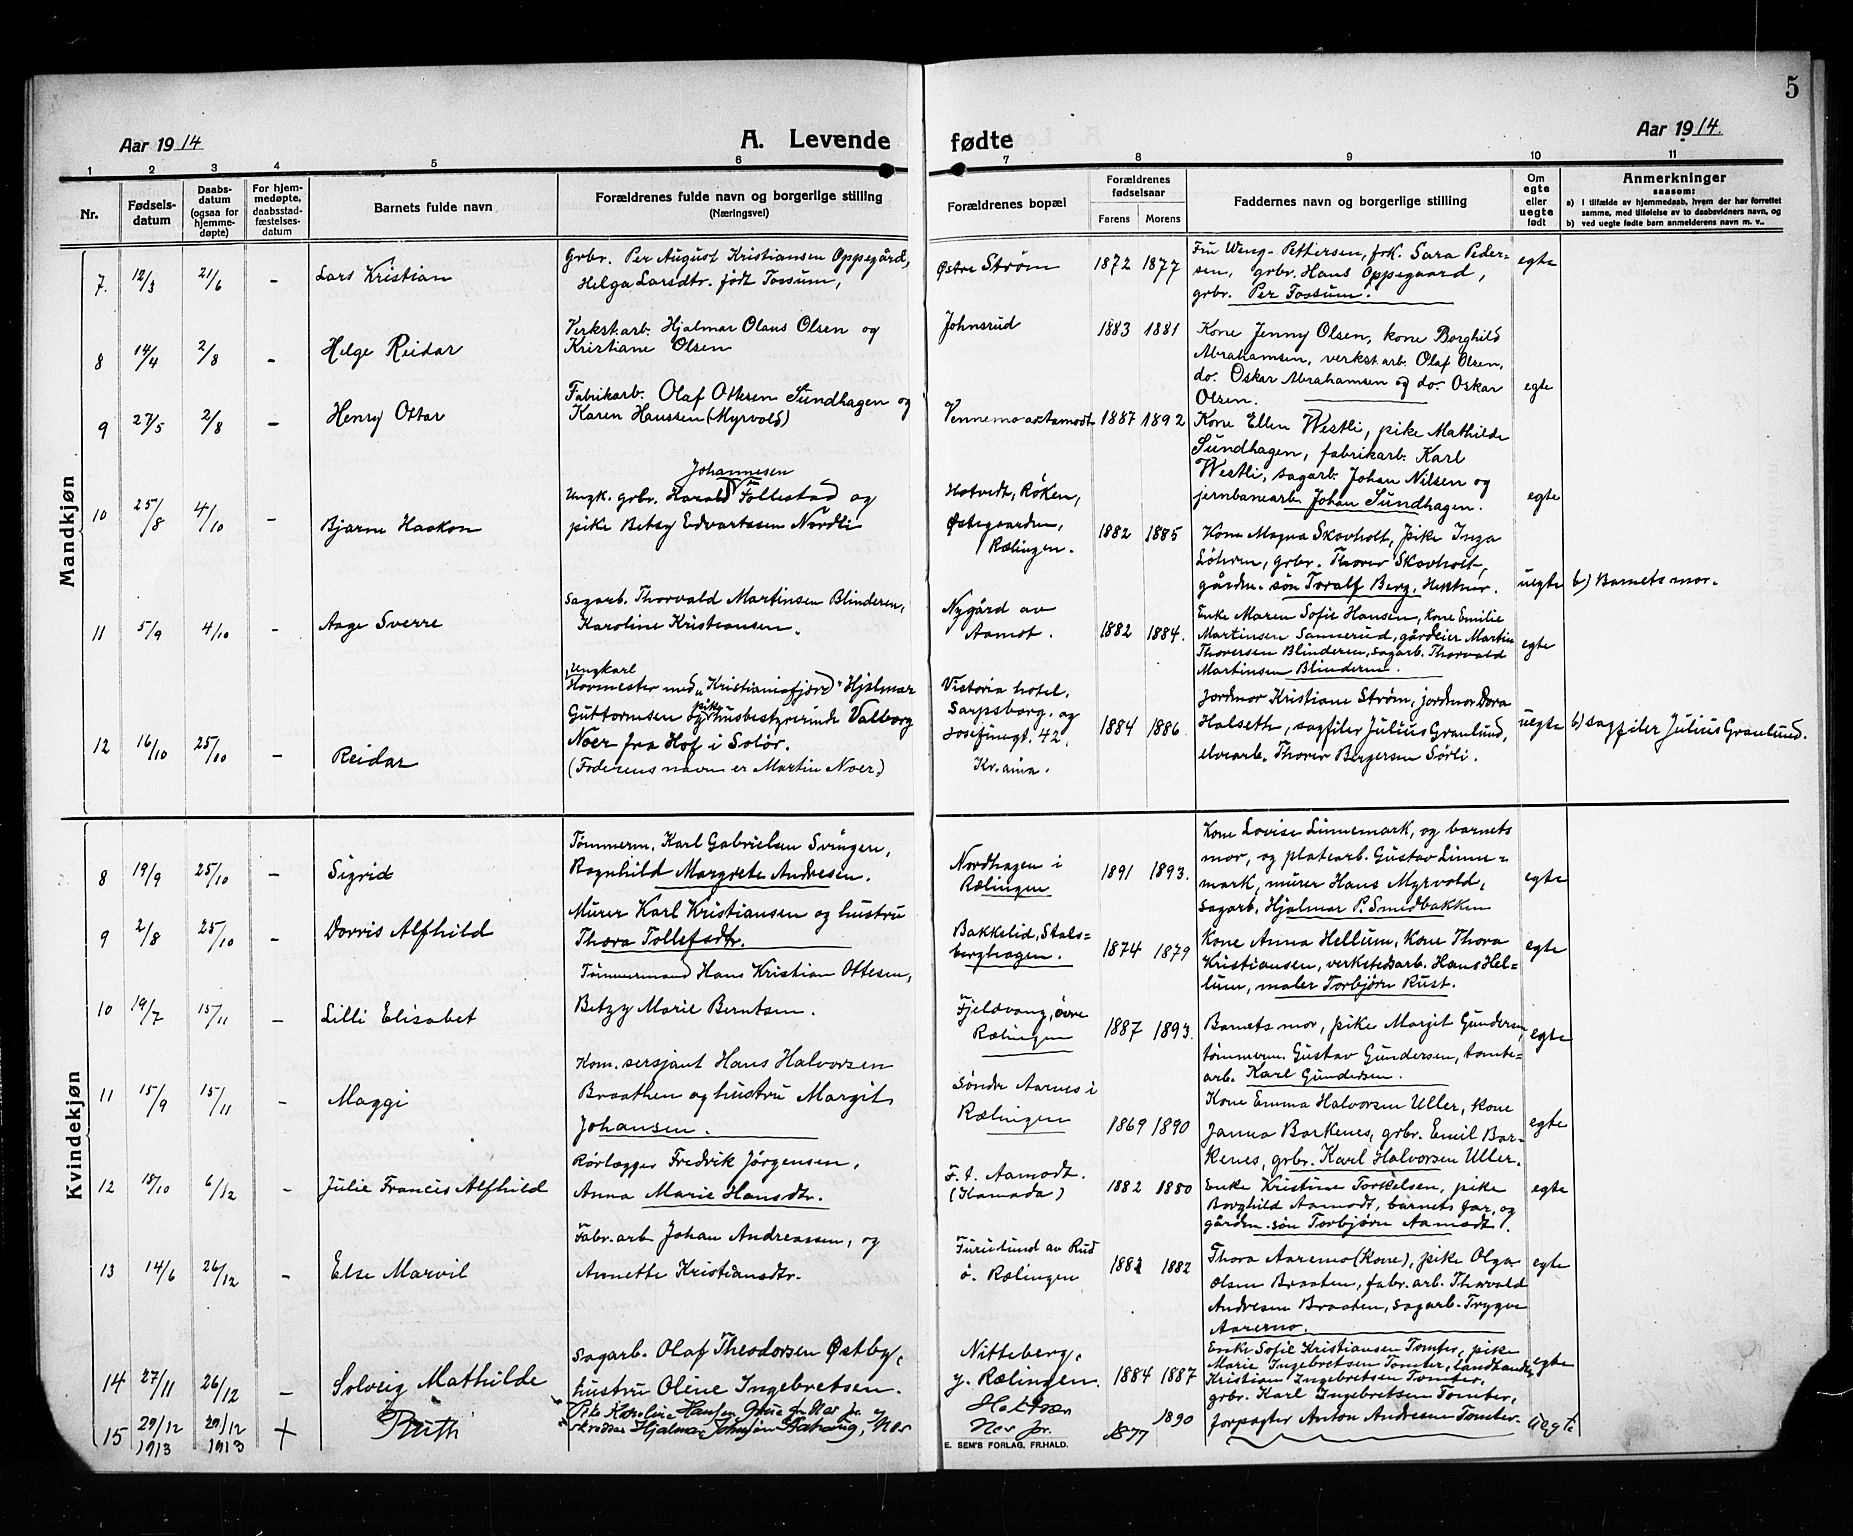 5
Aar 1914 A. Levende fødte Aar 1914.
1 2 3 4 5 6 7 8 9 10 11
Nr. Fødsels-datum Daabs-datum (ogsaa for hjemme-døpte) For hjem-medøpte, daabsstad-fæstelses-datum Barnets fulde navn Forældrenes fulde navn og borgerlige stilling (Næringsvei) Forældrenes bopæl Forældrenes fødselsaar Farens Morens Faddernes navn og borgerlige stilling Om egte eller uegte født Anmerkninger
saasom:
a) I tilfælde av hjemmedaab, hvem der har forrettet samme, med tilføielse av to daabsvidners navn, og
b) ved uegte fødte barn anmelderens navn m. v..
Mandkjøn
7. 12/3 21/6 - Lars Kristian
Grbr. Per August Kristiansen Oppegård,
Helga Larsdtr. født Tossum,
Østre Strøm 1872 1877
Fru Weng-Pettersen, frk. Sara Peder-
sen, grbr. Hans Oppegaard,
grbr. Per Tossum.
egte
8 14/4 2/8 - Helge Reidar
Verkst.arb. Hjalmar Olaus Olsen og
Kristiane Olsen
Johnsrud 1883 1881
Kone Jenny Olsen, kone Borghild
Abrahamsen, verkst.arb. Olaf Olsen,
do. Oskar Abrahamsen og do. Oskar
Olsen.
egte
9 27/5 2/8 - Henry Ottar
Fabrikarb. Olaf Ottesen Sundhagen og
Karen Hanssen (Myrvold)
Vennemo av Aamodt 1887 1892
Kone Ellen Westli, pike Mathilde
Sundhagen, fabrikarb. Karl
Westli, sagarb. Johan Nilsen og
jernbanearb. Johan Sundhagen.
egte
10 25/8 4/10 - Bjarne Haakon
Johannesen
Ungk. grbr. Harald Follestad og
pike Betsy Edvartssen Nordli
Hotvedt, Røken,
Østegaarden,
Rælingen. 1882 1885
Kone Magna Skovholt, pike Inga
Løhren, grbr. Thorer Skovholt,
gårdm. søn Toralf Berg, Hektner.
uegte b) Barnets mor.
11 5/9 4/10 - Aage Sverre
Sagarb. Thorvald Martinsen Blinderen,
Karoline Kristiansen.
Nygård av
Aamot. 1882 1884.
Enke Maren Sofie Hansen, kone Emilie
Martinsen Sannerud, gårdeier Martin
Thoresen Blinderen, sagarb. Thorvald
Martinsen Blinderen.
egte
12 16/10 25/10 - Reidar
Ungkarl
Hovmester med "Kristianiafjord" Hjalmar
Guttormsen og pike husbestyrerinde Valborg
Noer fra Hof i Solør.
(Faderens navn er Martin Noer)
Victoria hotel,
Sarpsborg. og
Josefinegt. 42,
Kr.ania. 1884 1886.
Jordmor Kristiane Strøm, jordmor Dora
Halseth, sagfiler Julius Granlund,
elvearb. Thorer Bergersen Sørli.
uegte b) sagfiler Julius Granlund.
Kvindekjøn
8 19/9 25/10 - Sigrid
Tømmerm. Karl Gabrielsen Svingen,
Ragnhild Margrete Andresen.
Nordhagen i
Rælingen 1891 1893.
Kone Lovise Linnemark, og barnets
mor, og platearb. Gustav Linne-
mark, murer Hans Myrvold,
sagarb. Hjalmar P. Smedbakken
egte
9 2/8 25/10 - Dorris Alfhild
Murer Karl Kristiansen og hustru
Thora Tollefsdtr.
Bakkelid, Stals-
berghagen. 1874 1879
Kone Anna Hellum, Kone Thora
Kristiansen, verkstedsarb. Hans Hel-
lum, maler Torbjørn Rust.
egte
10 19/7 15/11 - Lilli Elisabet
Tømmermand Hans Kristian Ottesen,
Betzy Marie Berntsen.
Fjeldvang, øvre
Rælingen 1887 1893.
Barnets mor, pike Margit Gundersen,
tømmerm. Gustav Gundersen, tomte-
arb. Karl Gundersen.
egte
11 15/9 15/11 - Maggi
Kom. sersjant Hans Halvorsen
Braathen og hustru Margit
Johansen.
Søndre Aarnes i
Rælingen 1869 1890
Kone Emma Halvorsen Uller, kone
Janna Barkenes, grbr. Emil Bar-
kenes, grbr. Karl Halvorsen Uller.
egte
12 18/10 6/12 - Julie Francis Alfhild
Rørlægger Fredrik Jørgensen,
Anna Marie Hansdtr.
F. t. Aamodt.
(Kanada) 1882 1880
Enke Kristine Torkelsen, pike
Borghild Aamodt, barnets far, og
gårdm. søn Torbjørn Aamodt.
egte
13 14/6 26/12 - Else Marvil
Fabr. arb. Johan Andreassen, og
Annette Kristiansdtr.
Furulund av Rud
ø. Rælingen 1882
Thora Aaremo (kone), pike Olga
Olsen Braaten, fabr. arb. Thorvald
Andresen Braaten, sagarb. Trygve
Aaremo.
egte
14 27/11 26/12 - Solveig Mathilde
Sagarb. Olaf Theodorsen Østby,
hustru Oline Ingebretsen.
Nitteberg,
y. Rælingen. 1884 1887
Enke Sofie Kristiansen Tomter, pike
Marie Ingebretsen Tomter, landhandler
Kristian Ingebretsen Tomter,
grbr. Karl Ingebretsen Tomter,
forpagter Anton Andresen Tomter.
egte
15 29/12 1913 29/12 1913 + Ruth
Pike Karoline Hansen
skrædder Hjalmar Johnsen
Hektner
1877 1890
uegte
E. SEM'S FORLAG, FR.HALD.